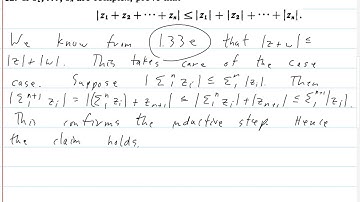 |z₁ + z₂ + ⋯ + zₙ| ≤ |z₁| + |z₂| + ⋯ + |zₙ|.
We know from 1.33e that |z+w| ≤
|z|+|w|. This takes care of the case
case. Suppose |Σ₁ⁿ zᵢ| ≤ Σ₁ⁿ |zᵢ|. Then
|Σ₁ⁿ⁺¹ zᵢ| = |(Σ₁ⁿ zᵢ) + zₙ₊₁| ≤ |Σ₁ⁿ zᵢ| + |zₙ₊₁| ≤ Σ₁ⁿ⁺¹ |zᵢ|.
This confirms the inductive step. Hence
the claim holds.